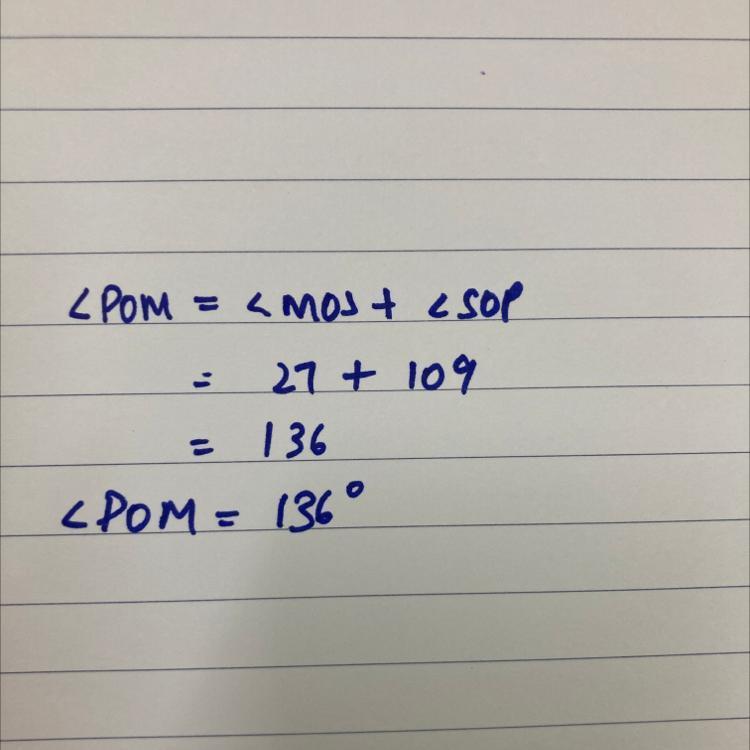 ∠POM = ∠MOS + ∠SOP
= 27 + 109
= 136
∠POM = 136°